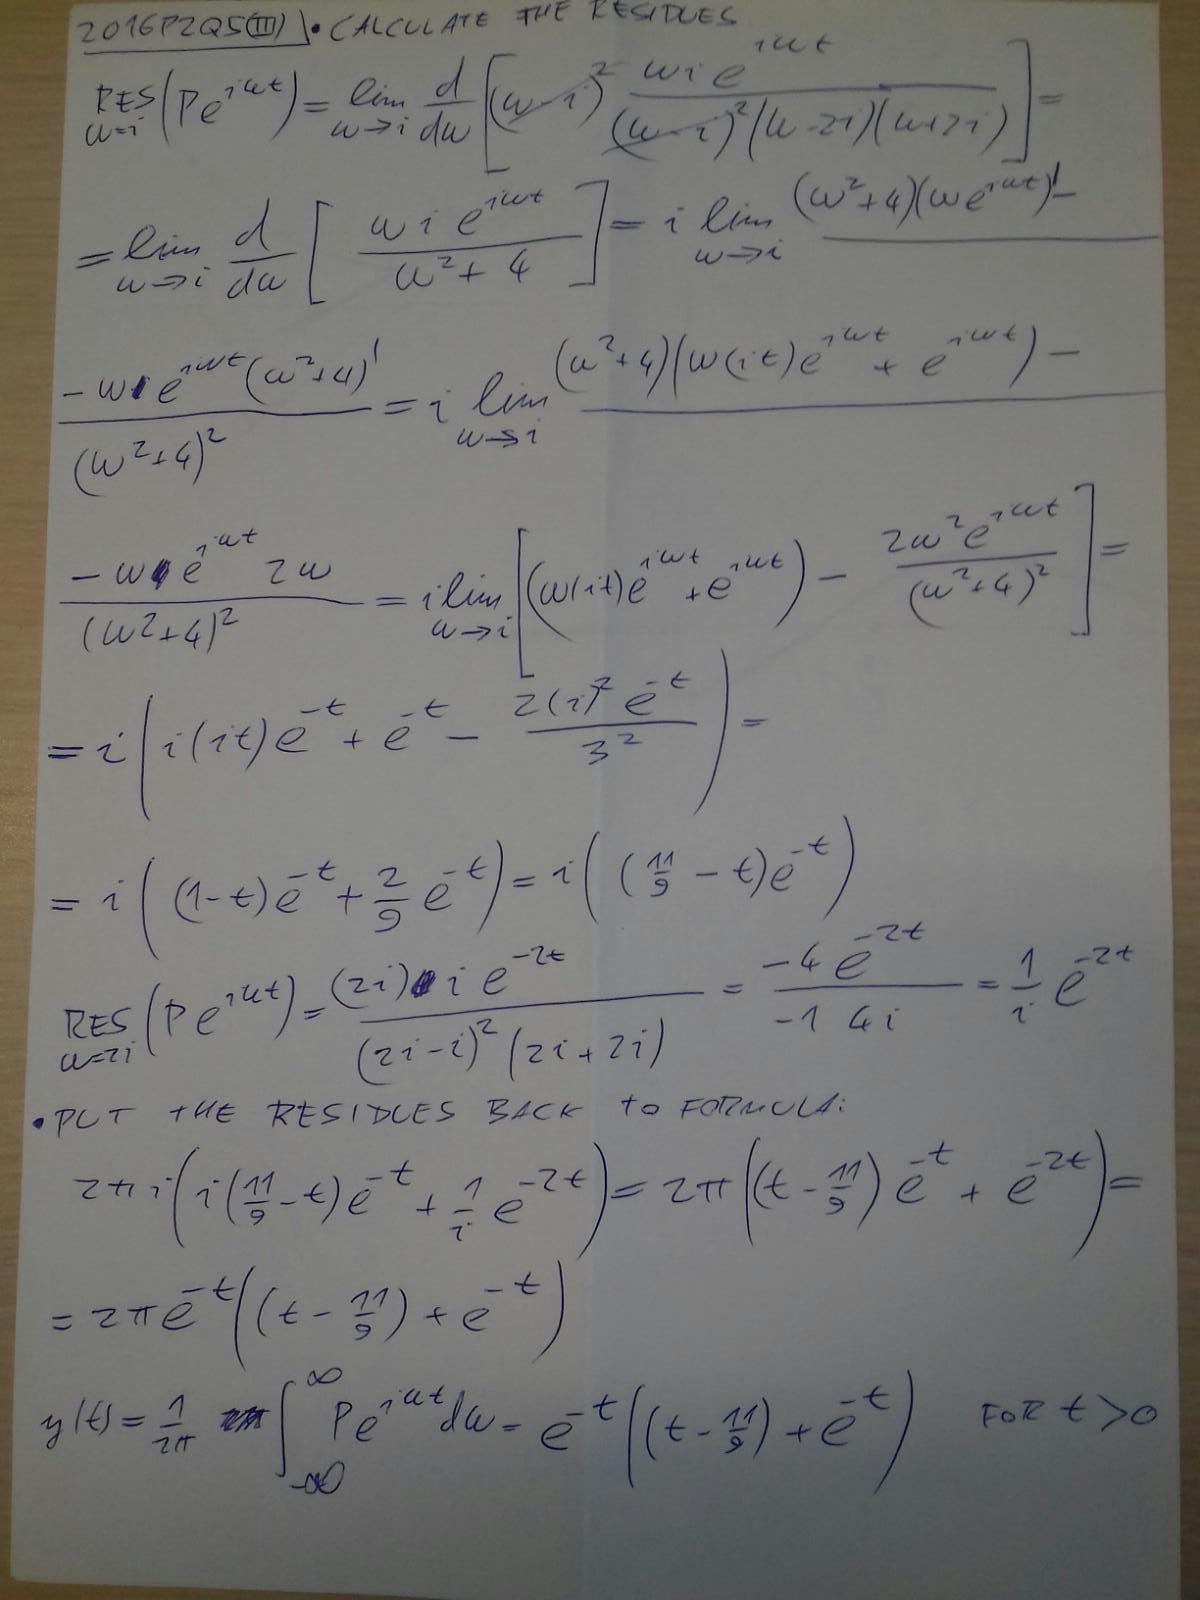 2016P2Q5(III) • CALCULATE THE RESIDUES
RES_{ω=i} (Pe^{iωt}) = lim_{ω→i} d/dω [(ω-i)² ωi e^{iωt} / ((ω-i)²(ω-2i)(ω+2i))] =
= lim_{ω→i} d/dω [ωi e^{iωt} / (ω²+4)] = i lim_{ω→i} (ω²+4)(ωe^{iωt})' -
-ωe^{iωt}(ω²+4)' / (ω²+4)² = i lim_{ω→i} (ω²+4)(ω(it)e^{iωt} + e^{iωt}) -
-ωe^{iωt} 2ω / (ω²+4)² = i lim_{ω→i} [(ω(it)e^{iωt} + e^{iωt}) - 2ω²e^{iωt} / (ω²+4)²] =
= i (i(it)e^{-t} + e^{-t} - 2(i)² e^{-t} / 3²) =
= i ((1-t)e^{-t} + 2/9 e^{-t}) = i ((11/9 - t)e^{-t})
RES_{ω=2i} (Pe^{iωt}) = (2i) i e^{-2t} / ((2i-i)² (2i+2i)) = -4e^{-2t} / (-1 4i) = 1/i e^{-2t}
• PUT THE RESIDUES BACK TO FORMULA:
2πi (i(11/9 - t)e^{-t} + 1/i e^{-2t}) = 2π ((t - 11/9) e^{-t} + e^{-2t}) =
= 2πe^{-t} ((t - 11/9) + e^{-t})
y(t) = 1/2π ∫_{-∞}^{∞} Pe^{iωt} dω = e^{-t} ((t - 11/9) + e^{-t}) FOR t > 0